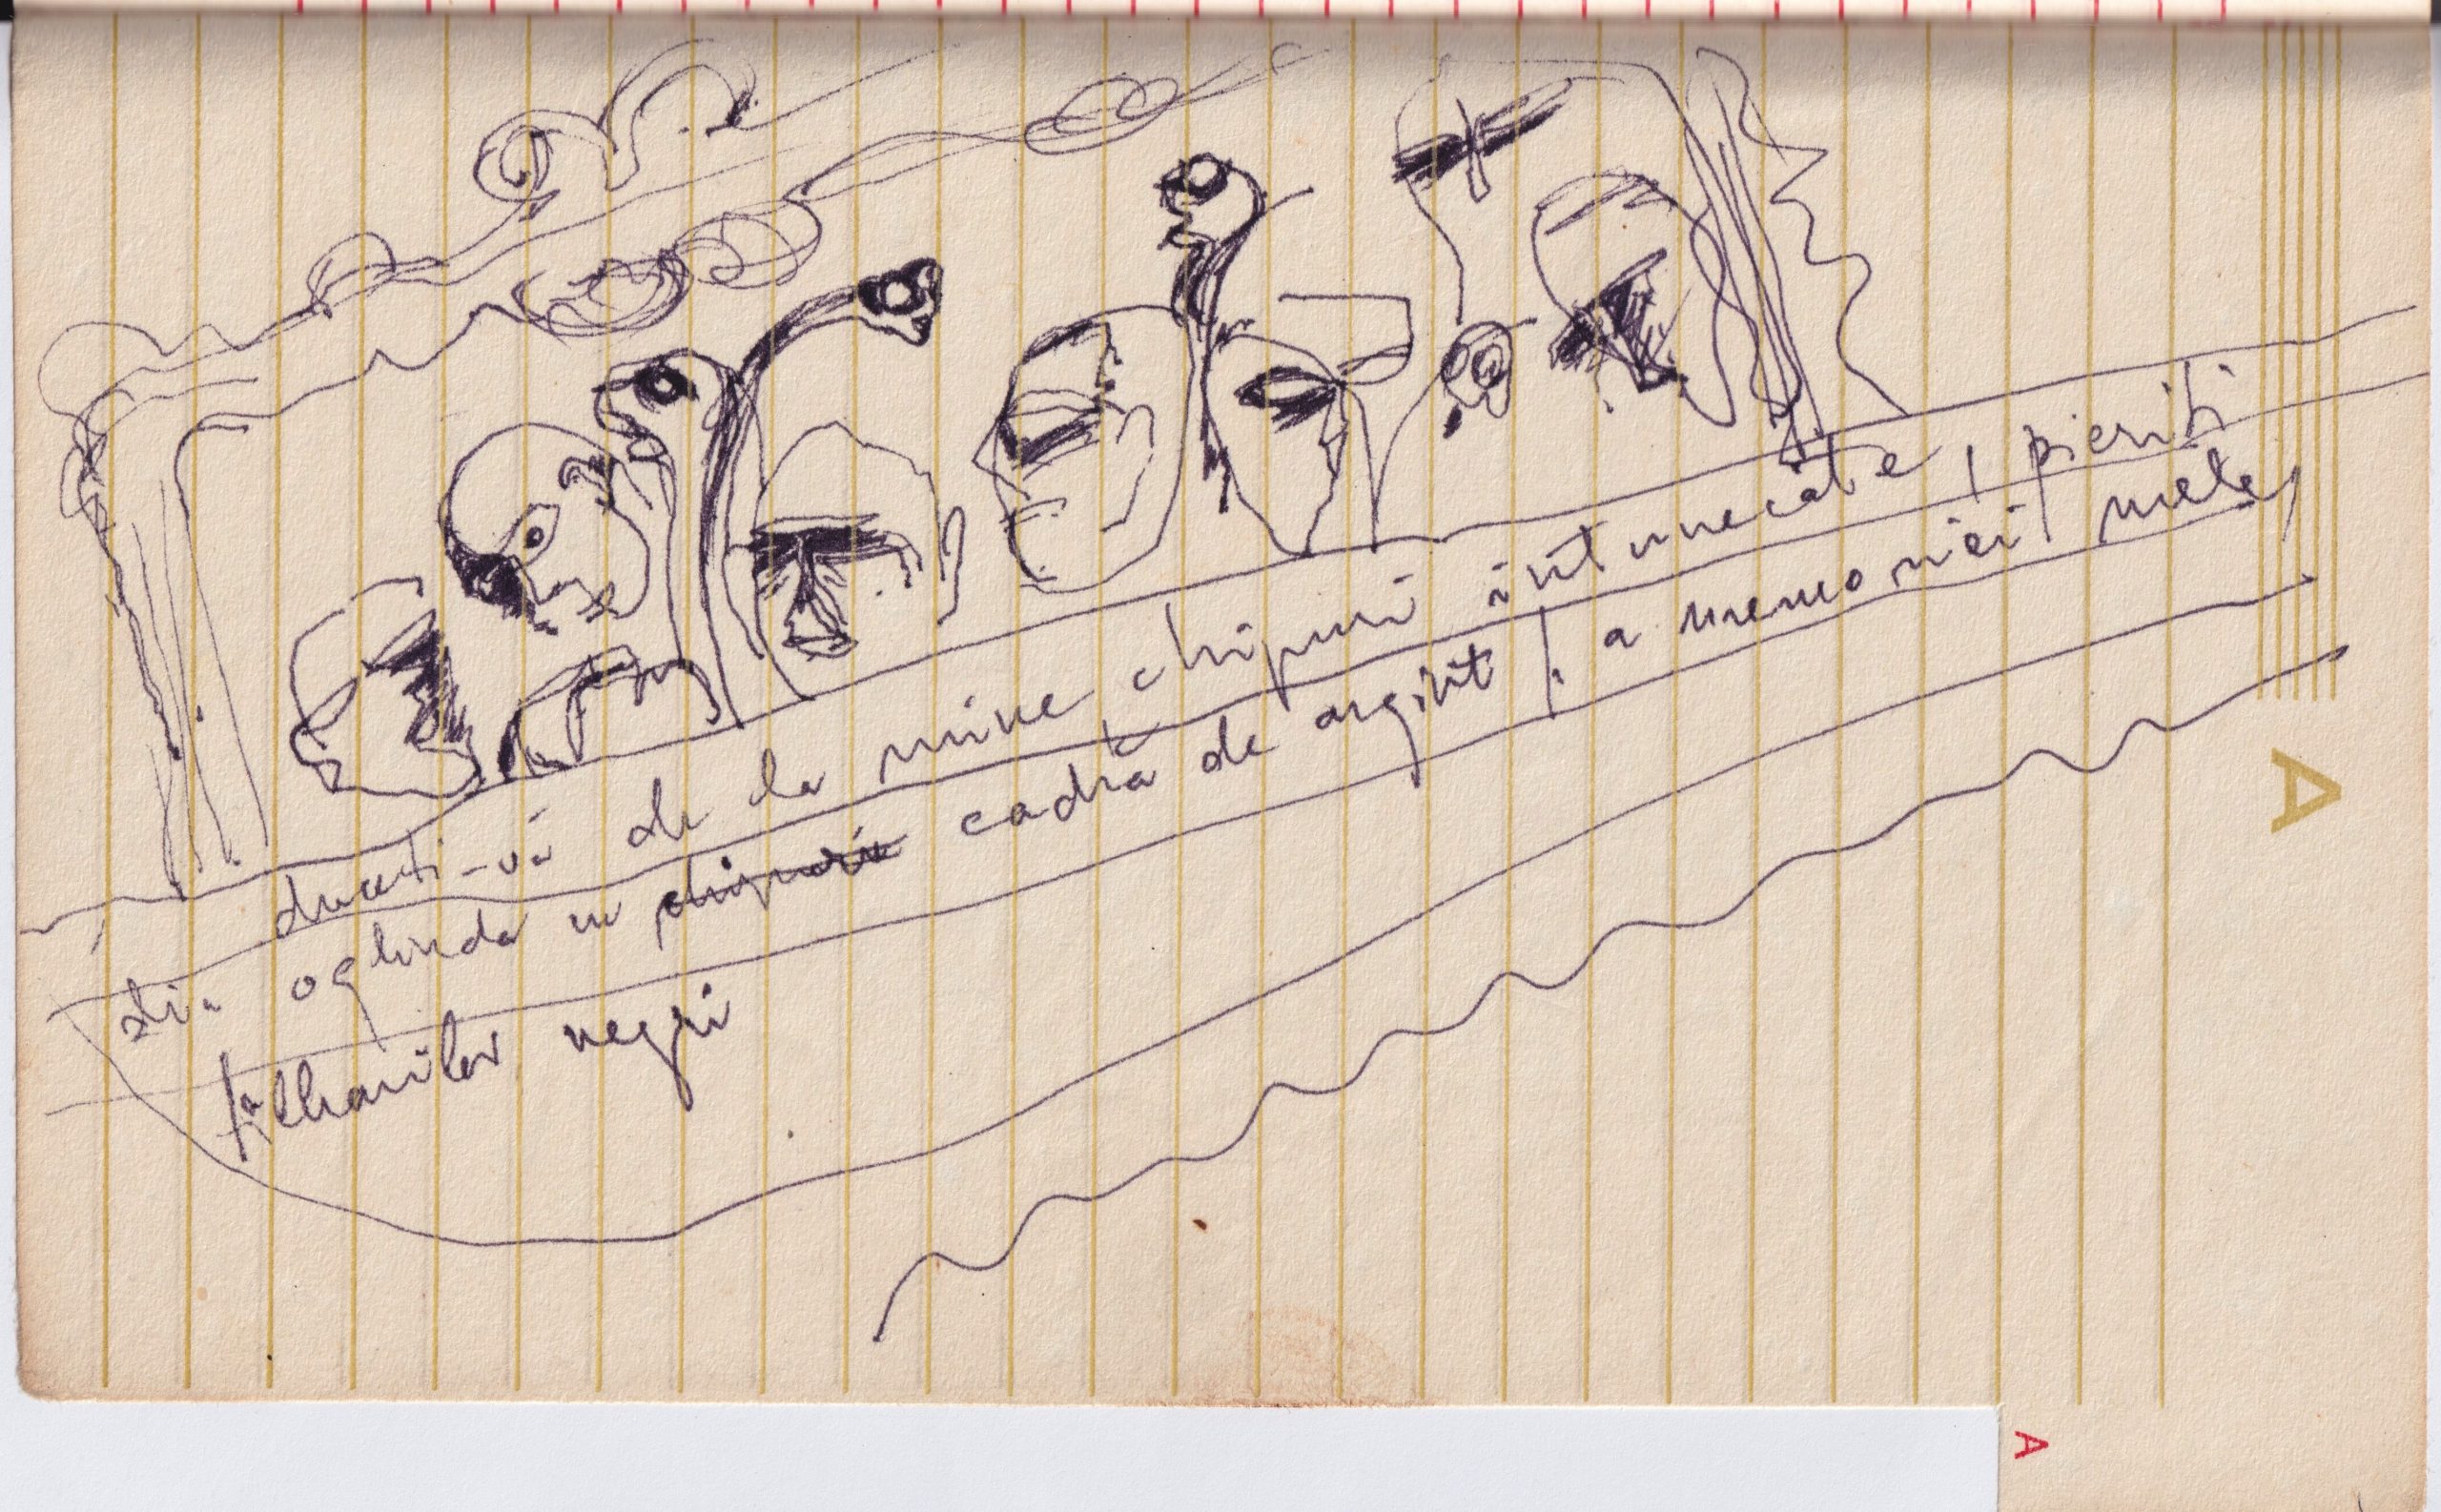 duceti-vă de la mine chipuri intunecate, pieriti
din oglinda cu chipuri cadră de argint / a memoriei mele,
tâlharilor negri
A
A